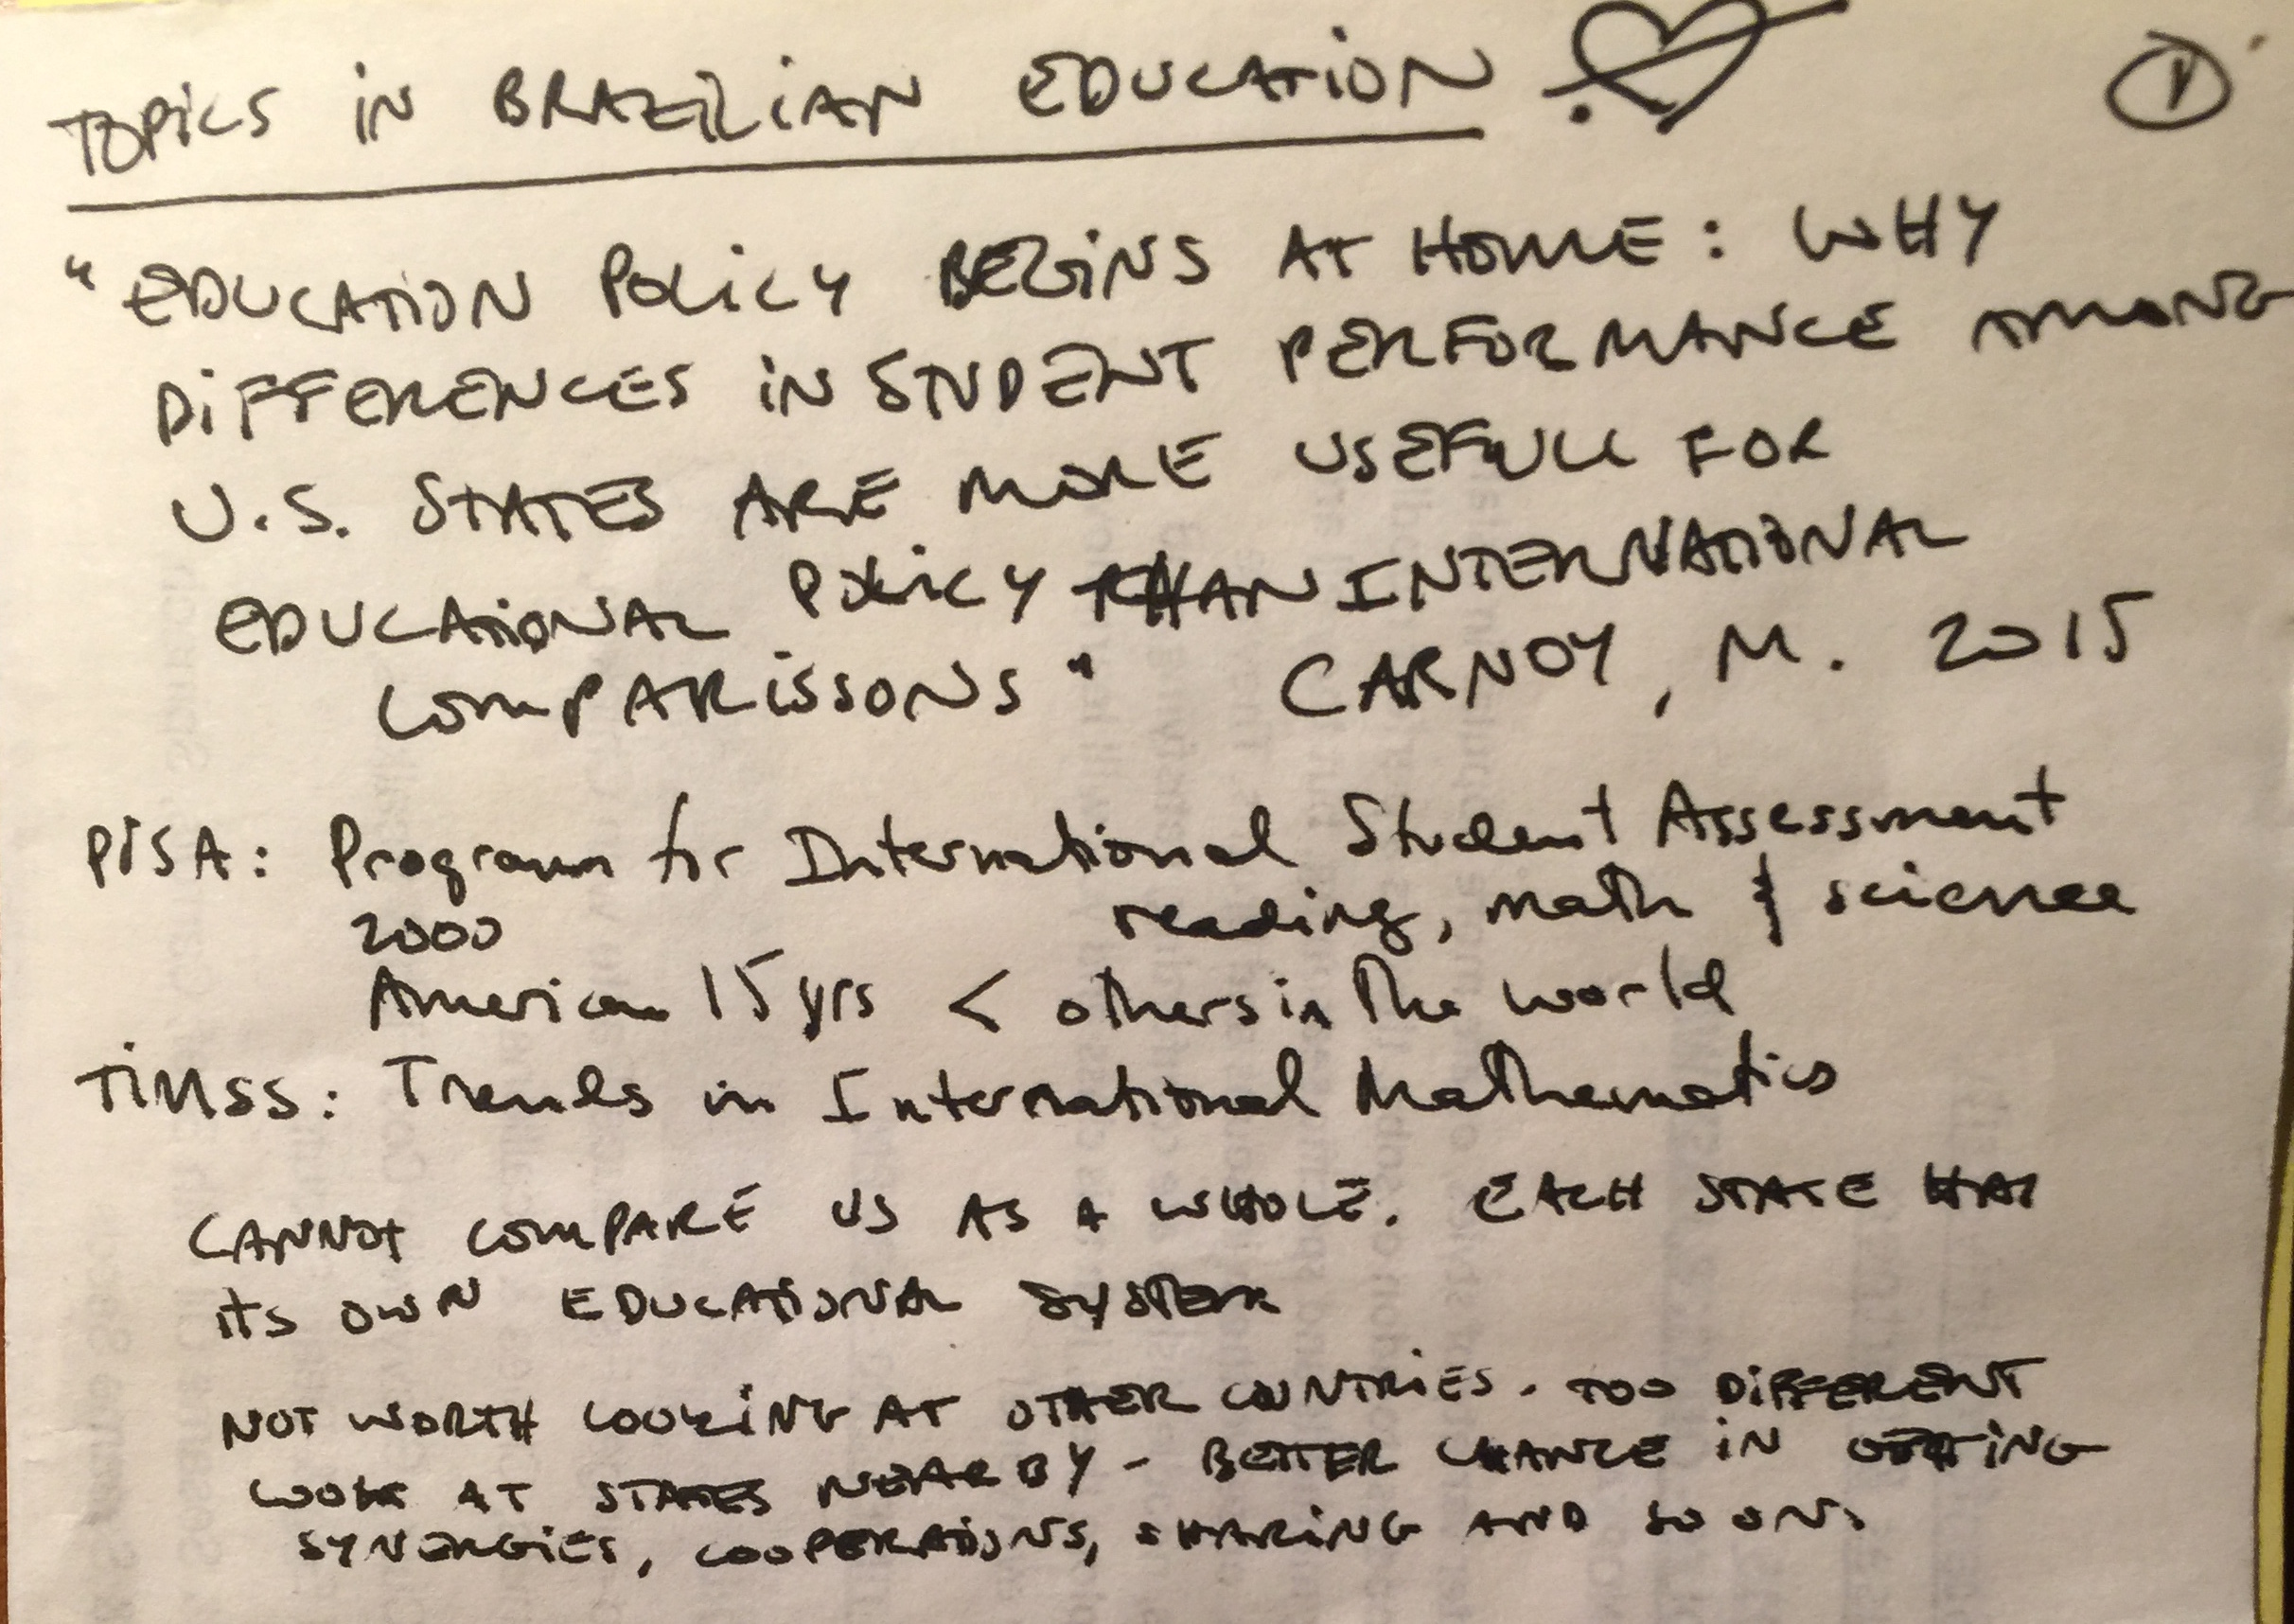 TOPICS IN BRAZILIAN EDUCATION 1
"EDUCATION POLICY BEGINS AT HOME: WHY
DIFFERENCES IN STUDENT PERFORMANCE AMONG
U.S. STATES ARE MORE USEFULL FOR
EDUCATIONAL POLICY THAN INTERNATIONAL
COMPARISSONS" CARNOY, M. 2015
PISA: Program for International Student Assessment
2000 reading, math & science
American 15 yrs < others in the world
TIMSS: Trends in International Mathematics
CANNOT COMPARE US AS A WHOLE. EACH STATE HAS
ITS OWN EDUCATIONAL SYSTEM
NOT WORTH LOOKING AT OTHER COUNTRIES. TOO DIFFERENT
LOOK AT STATES NEARBY - BETTER CHANCE IN GETTING
SYNERGIES, COOPERATIONS, SHARING AND SO ON.